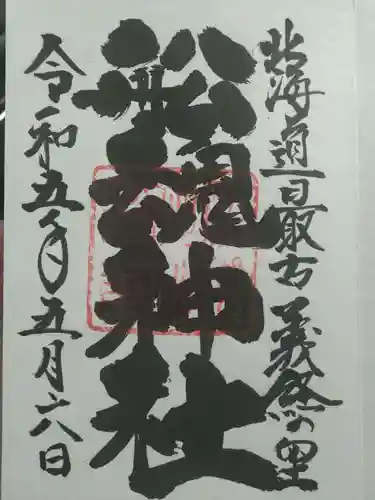 北海道最古 義経の里
舩魂神社
令和五年五月六日